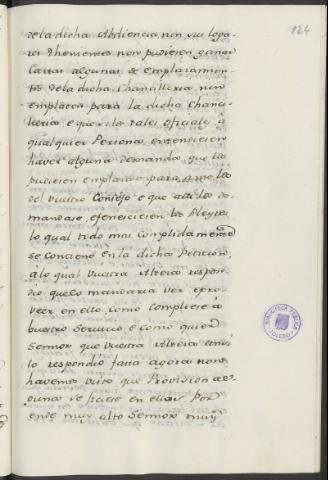 124
de la dicha Abdiencia nin sus loga
res thenientes non pudiesen ganar
cartas algunas de emplazamien
tos de la dicha Chancilleria nin
emplacen para la dicha Chanci
lleria e que si los tales oficiales a
qualquier Persona entendieren
haver alguna demanda que los
pudiesen emplazar para ante los
del vuestro Consejo e que alli les de
mandase, e feneciesen los Pleytos
lo qual todo mas complidamente
se contiene en la dicha Peticion,
a lo qual vuestra Alteza respon
dio que lo mandaria ver e pro
veer en ello como compliese a
vuestro servicio e como quier
Sennor que vuestra Alteza ansi
lo respondio fasta agora non
havemos visto que Provision al
guna se ficiese en ello. Por
ende muy alto Sennor muy
BIBLIOTECA PUBLICA
TOLEDO